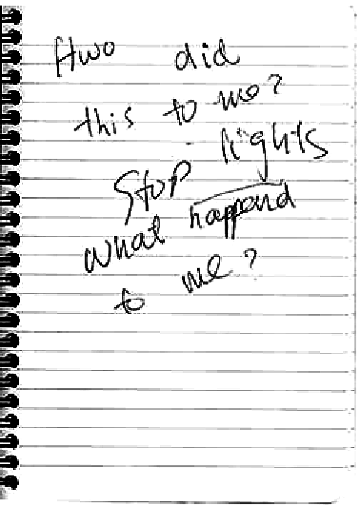 Hwo did
this to me?
Stop lights
what happend
to me?